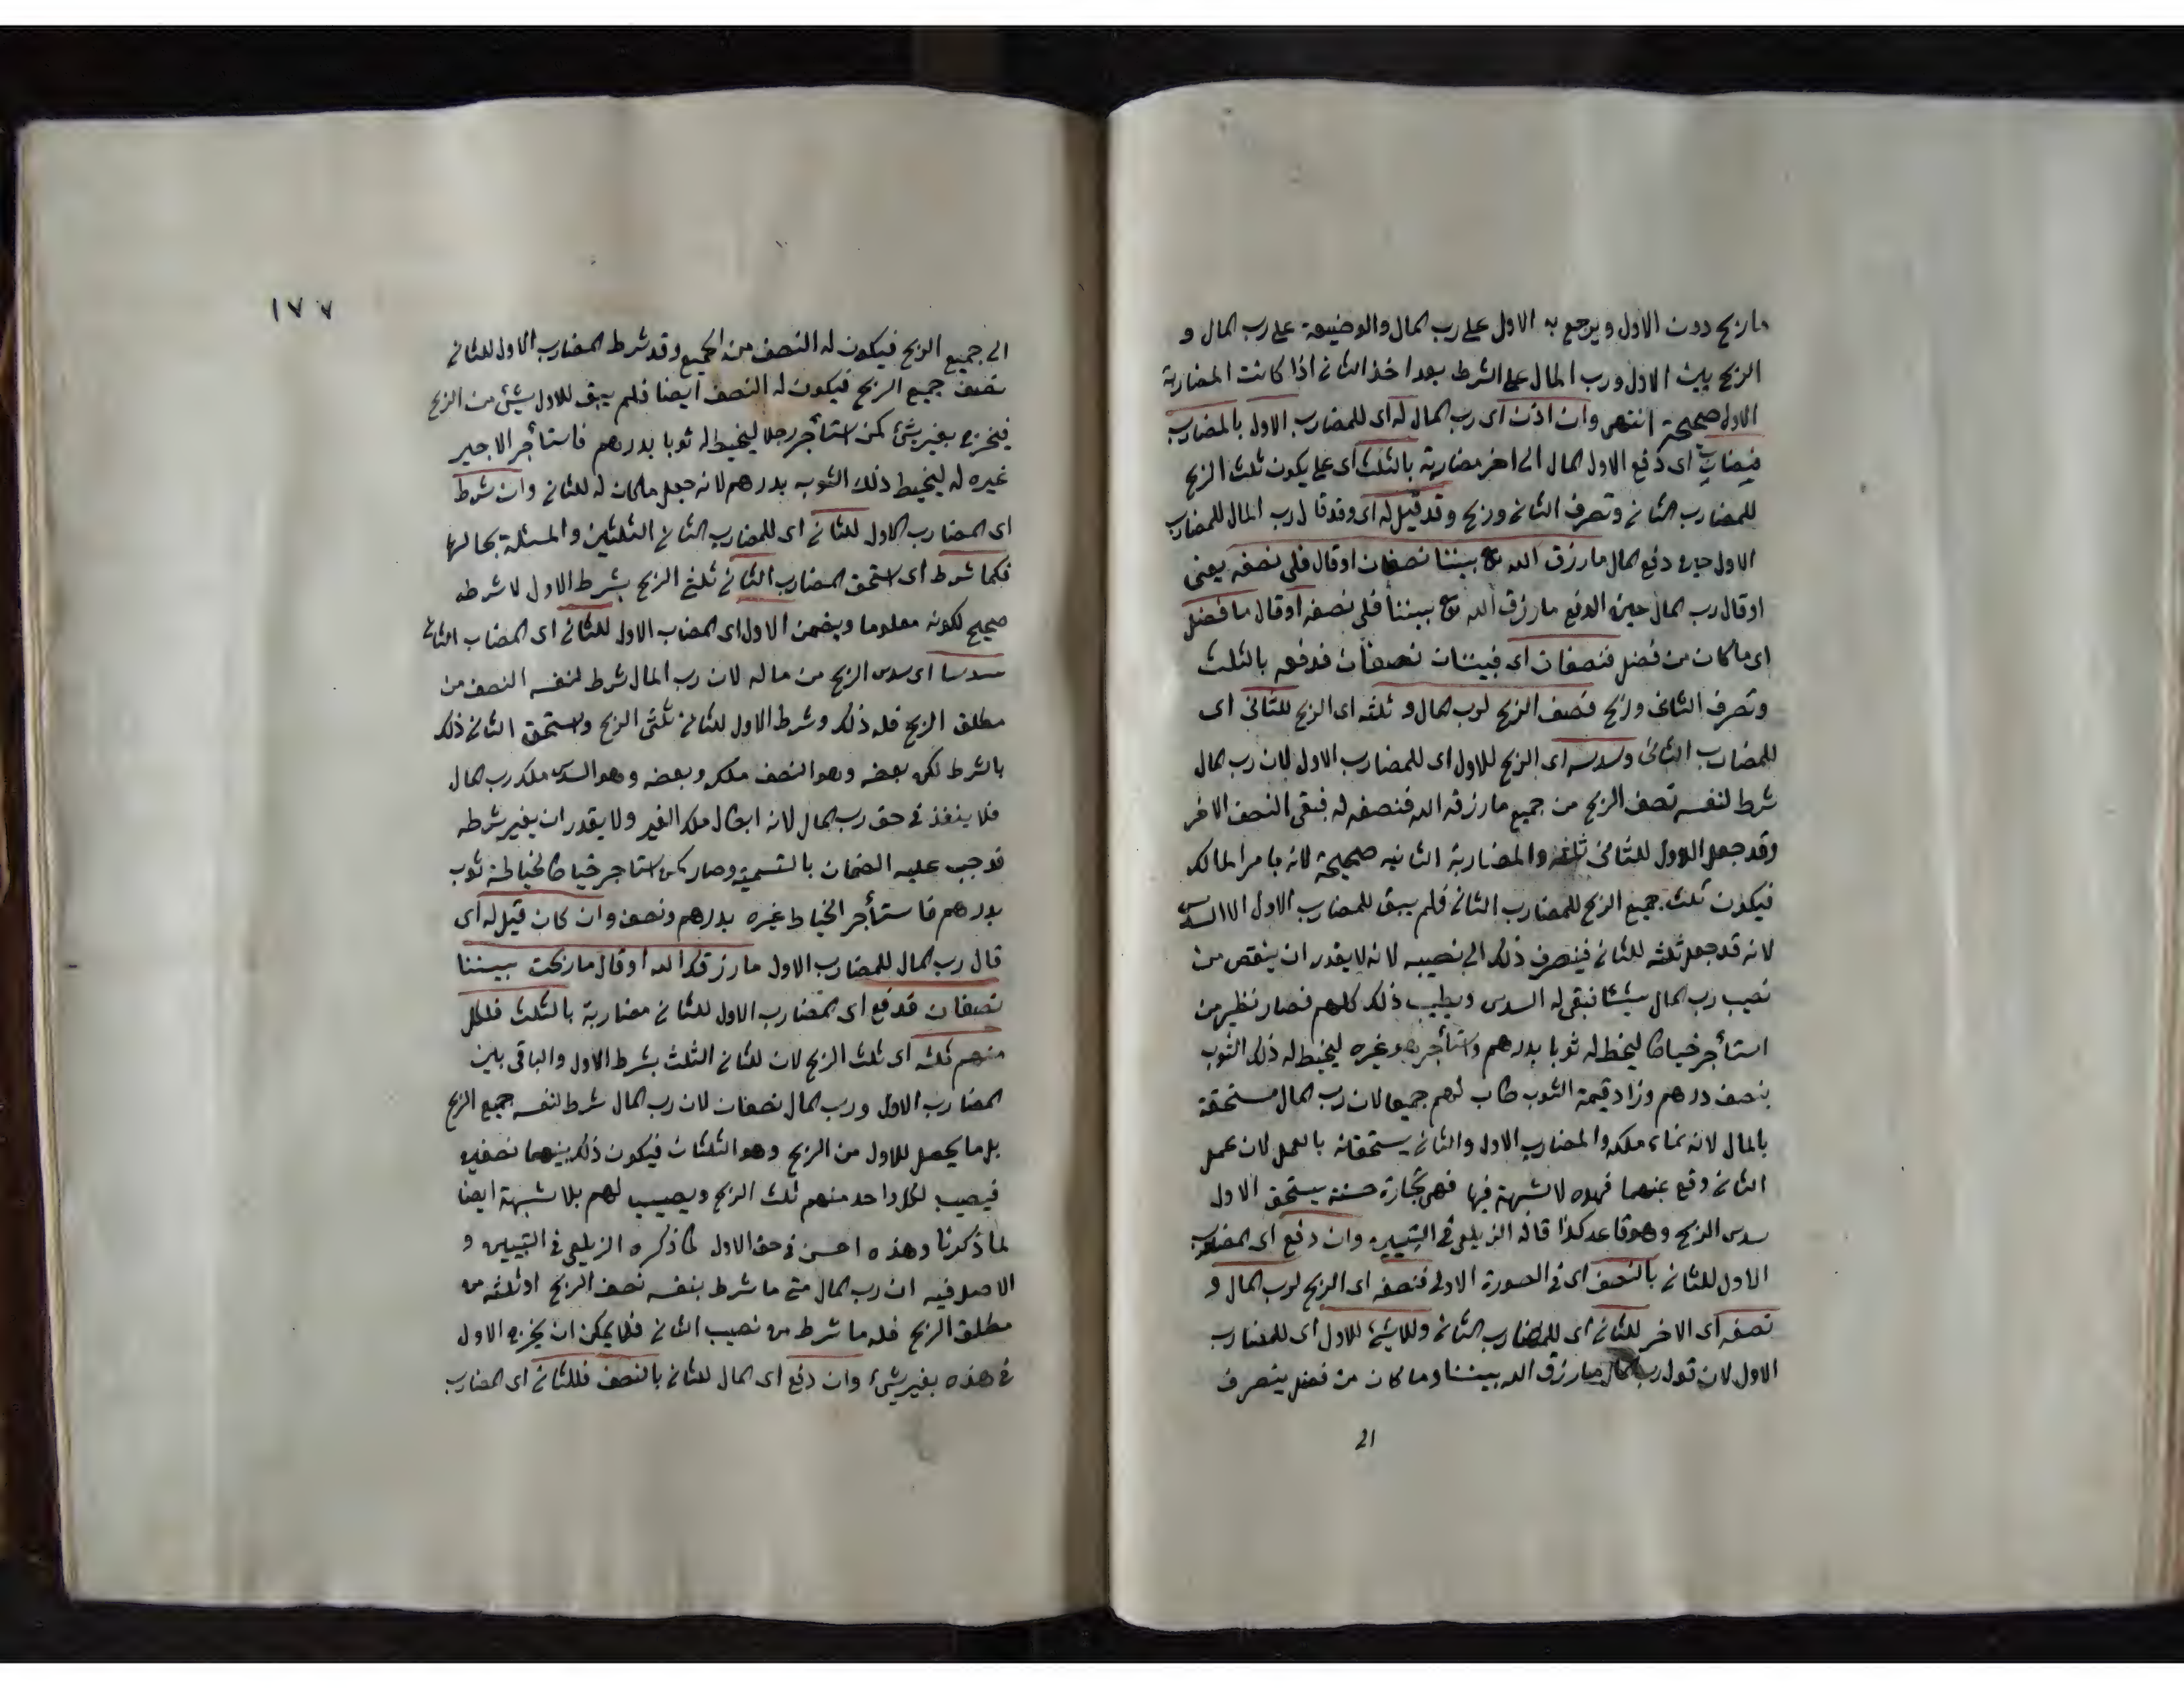 ما ربح دون الاول ويرجع به الاول على رب المال والوضيعة على رب المال و
الربح بين الاول ورب المال على الشرط بعد اخذ الثاني اذا كانت المضاربة
الاولى صحيحة انتهى وان اذن اى رب المال له اى للمضارب الاول بالمضاربة
فضارب اى دفع الاول المال الى اخر مضاربة بالثلث اى على يكون ثلث الربح
للمضارب الثاني وتصرف الثاني وربح وقد قيل له اى وقد قال رب المال للمضارب
الاول حين دفع المال ما رزق الله تع بيننا نصفان او قال فلى نصفه يعنى
او قال رب المال حين الدفع ما رزق الله تع بيننا فلى نصفه او قال ما فضل
اى ما كان من فضل فنصفان اى فبيننا نصفان فدفعه بالثلث
وتصرف الثانى وربح فنصف الربح لرب المال و ثلثه اى الربح للثانى اى
للمضارب الثانى وسدسه اى الربح للاول اى للمضارب الاول لان رب المال
شرط لنفسه نصف الربح من جميع ما رزقه الله فنصفه له فبقى النصف الاخر
وقد جعل الاول للثانى ثلثه والمضاربة الثانيه صحيحة لانه بامر المالك
فيكون ثلث جميع الربح للمضارب الثاني فلم يبق للمضارب الاول الا السدس
لانه قد جعل ثلثه للثاني فينصرف ذلك الى نصيبه لانه لا يقدر ان ينقص من
نصيب رب المال شيئا فبقى له السدس ويطيب ذلك كلهم فصار نظير من
استأجر خياطا ليخط له ثوبا بدرهم واستأجر هو غيره ليخيط له ذلك الثوب
بنصف درهم وزاد قيمة الثوب طاب لهم جميعا لان رب المال مستحقة
بالمال لانه نماء ملكه والمضارب الاول والثاني يستحقانه بالعمل لان عمل
الثاني وقع عنهما فهذه لا شبهة فيها فهى تجارة حسنة يستحق الاول
سدس الربح وهو قاعد كذا قاله الزيلعى فى التبيين وان دفع اى المضارب
الاول للثاني بالنصف اى فى الصورة الاولى فنصفه اى الربح لرب المال و
نصفه اى الاخر للثاني اى للمضارب الثاني ولا شئ للاول اى للمضارب
الاول لان قول رب المال ما رزق الله بيننا وما كان من فضل ينصرف
21
١٧٧
الى جميع الربح فيكون له النصف من الجميع وقد شرط المضارب الاول للثاني
نصف جميع الربح فيكون له النصف ايضا فلم يبق للاول شئ من الربح
فيخرج بغير شئ كمن استأجر رجلا ليخيط له ثوبا بدرهم فاستأجر الاجير
غيره له ليخيط ذلك الثوب بدرهم لانه جعل ما كان له للثاني وان شرط
اى المضارب الاول للثاني اى للمضارب الثاني الثلثين والمسئلة بحالها
فكما شرط اى استحق المضارب الثاني ثلثى الربح بشرط الاول لا شرطه
صحيح لكونه معلوما ويضمن الاول اى المضاب الاول للثاني اى المضاب الثاني
سدسا اى سدس الربح من ماله لان رب المال شرط لنفسه النصف من
مطلق الربح فله ذلك وشرط الاول للثاني ثلثى الربح واستحق الثاني ذلك
بالشرط لكن بعضه وهو النصف ملكه وبعضه وهو السدس ملك رب المال
فلا ينفذ فى حق رب المال لانه ابطال ملك الغير ولا يقدر ان يغير شرطه
فوجب عليه الضمان بالتسمية وصار كمن استاجر خياطا لخياطة ثوب
بدرهم فاستأجر الخياط غيره بدرهم ونصف وان كان قيل له اى
قال رب المال للمضارب الاول ما رزقك الله او قال ما ربحت بيننا
نصفان فدفع اى المضارب الاول للثاني مضاربة بالثلث فلكل
منهم ثلثه اى ثلث الربح لان للثاني الثلث بشرط الاول والباقى بين
المضارب الاول ورب المال نصفان لان رب المال شرط لنفسه جميع الربح
بل ما يحصل للاول من الربح وهو الثلثان فيكون ذلك بينهما نصفين
فيصيب لكل واحد منهم ثلث الربح ويصيب لهم بلا شبهة ايضا
لما ذكرنا وهذه احسن فى حق الاول كما ذكره الزيلعى فى التبيين و
الاصل فيه ان رب المال متى ما شرط بنفسه نصف الربح او ثلثه من
مطلق الربح فله ما شرط من نصيب الثاني فلا يمكن ان يخرج الاول
فى هذه بغير شئ وان دفع اى المال للثاني بالنصف فللثاني اى المضارب